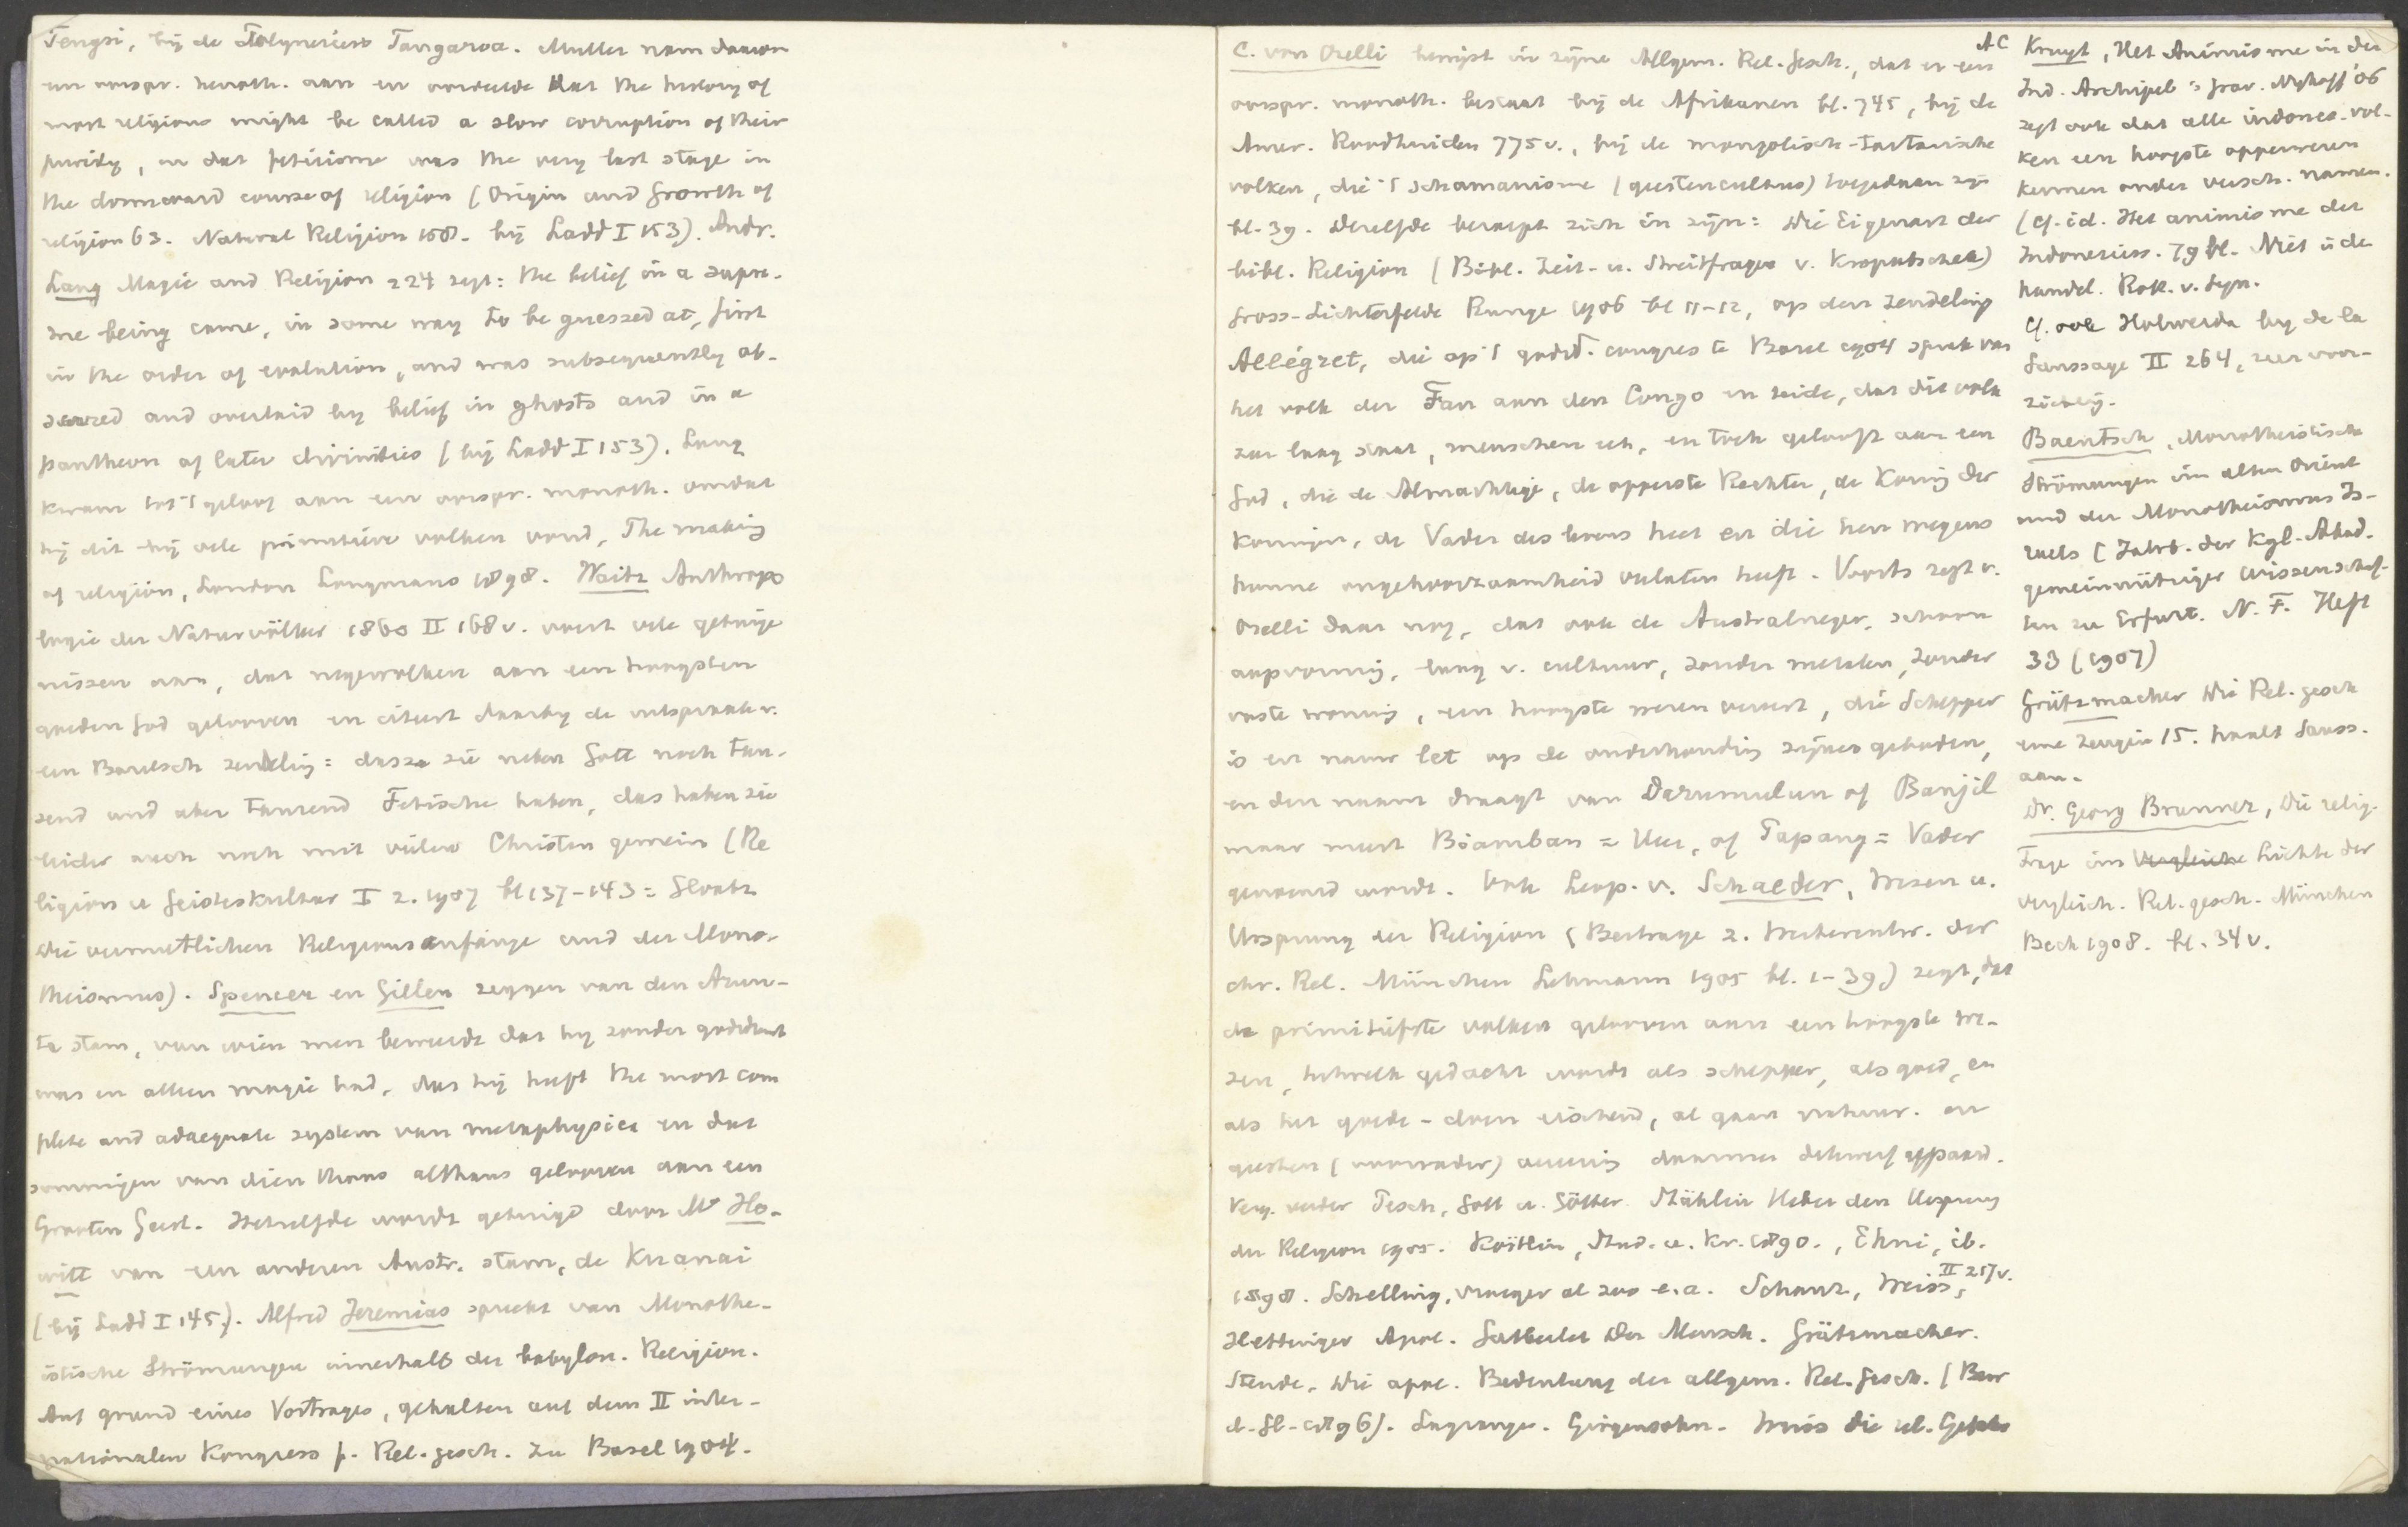 Tengri, bij de Polynesiërs Tangaroa. Muller nam daarom
een oorspr. henoth. aan en oordeelde dat the history of
most religions might be called a slow corruption of their
purity, en dat fetisisme was the very last stage in
the downward course of religion (Origin and Growth of
religion 63. Natural Religion 158. bij Ladd I 153). Andr.
Lang Magic and Religion 224 zegt: the belief in a supre-
me being came, in some way to be guessed at, first
in the order of evolution, and was subsequently ob-
scured and overlaid by belief in ghosts and in a
pantheon of later divinities (bij Ladd I 153). Lang
kwam tot 't geloof aan een oorspr. monoth. omdat
hij dit bij vele primitieve volken vond, The making
of religion, London Longmans 1898. Waitz Anthropo
logie der Naturvölker 1860 II 168 v. voert vele getuige
nissen aan, dat negervolken aan een hoogsten
goeden God gelooven en citeert daarbij de uitspraak v.
een Baselsch zendeling: dasze sie neben Gott noch tau-
send und aber tausend Fetische haben, das haben sie
leider auch noch mit vielen Christen gemein (Re
ligion u Geisteskultur I 2. 1907 bl 137-143 = Gloatz
Die vermutlichen Religionsanfänge und der Mono-
theismus). Spencer en Gillen zeggen van den Arun-
ta stam, van wien men beweerde dat hij zonder godsdienst
was en alleen magie had, dat hij heeft the most com
plete and adaequate system van metaphysics en dat
sommigen van dien stam althans gelooven aan een
Grooten Geest. Hetzelfde wordt getuigd door Mr Ho-
witt van een anderen Austr. stam, de Kurnai
(bij Ladd I 145). Alfred Jeremias spreekt van Monothe-
istische Strömungen innerhalb der babylon. Religion.
Auf grund eines Vortrages, gehalten auf dem II inter-
nationalen Kongress f. Rel. gesch. zu Basel 1904.
C. von Orelli bewijst in zijne Allgem. Rel. Gesch., dat er een
oorspr. monoth. bestaat bij de Afrikanen bl. 745, bij de
Amer. Roodhuiden 775 v., bij de mongolisch-tartarische
volken, die 't schamanisme (geestencultus) toegedaan zijn
bl. 39. Dezelfde beroept zich in zijn: Die Eigenart der
bibl. Religion (Bibl. Zeit- u. Streitfragen v. Kropatscheck)
Gross-Lichterfelde Runge 1906 bl 11-12, op den zendeling
Allégret, die op 't godsd. congres te Basel 1904 sprak van
het volk der Fan aan den Congo en zeide, dat dit volk
zeer laag staat, menschen eet, en toch gelooft aan een
God, die de Almachtige, de opperste Rechter, de Koning der
Koningen, de Vader des levens heet en die hen wegens
hunne ongehoorzaamheid verlaten heeft. Voorts zegt v.
Orelli daar nog, dat ook de Australneger, schoon
laag v. cultuur, zonder metalen, zonder
vaste woning, een hoogste wezen vereert, die Schepper
is en nauw let op de onderhouding zijner geboden,
en den naam draagt van Darumulun of Banjil
maar meest Biamban = Heer, of Papang = Vader
genoemd wordt. Ook Leop. v. Schroeder, Wesen u.
Ursprung der Religion (Beitrage z. Weiterentw. der
chr. Rel. München Lehmann 1905 bl. 1-39) zegt, dat
de primitiefste volken gelooven aan een hoogste we-
zen, hetwelk gedacht wordt als schepper, als goed, en
als het goede-doen eischend, al gaat natuur- en
geesten (voorvader) vereering daarmee dikwerf gepaard.
Verg. verder Pesch, Gott u. Götter. Stählin Ueber den Ursprung
der Religion 1905. Köstlin, Stud. u. Kr. 1890., Ehni, ib.
1898. Schelling, vroeger al zoo e.a. Schanz, Weiss, II 217 v.
Hettinger Apol. Gutberlet Der Mensch. Grützmacher.
Steude, Die apol. Bedeutung der allgem. Rel. Gesch. (Bew
d. Gl. 1896). Lagrange. Girgensohn. Weiss die rel.
AC Kruyt, Het Animisme in den
Ind. Archipel 's Grav. Nijhoff '06
zegt ook dat alle indones. vol-
ken een hoogste opperwezen
kennen onder versch. namen.
(cf. id. Het animisme der
Indonesiërs. 79 bl. Niet i/de
handel. Rotk. v. Dyn.
Cf. ook Holwerda bij de la
Saussaye II 264, zeer voor-
zichtig.
Baentsch, Monotheistische
Strömungen im alten Orient
und der Monotheismus Is-
raels (Jahrb. der Kgl. Akad.
gemeinnütziger Wissenschaf-
ten zu Erfurt. N. F. Heft
33 (1907)
Grützmacher Die Rel. gesch
eine Zeugin 15. haalt Sauss.
aan.
Dr. Georg Brunner, Die relig.
Frage im Vergleiche Lichte der
vergleich. Rel. gesch. München
Beck 1908. bl. 34 v.